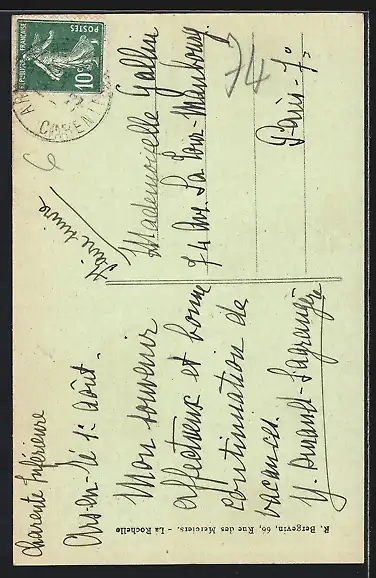 Charente Inférieure
Ars-en-Ré 1er août.
Mon souvenir
affectueux et bonne
continuation de
vacances.
Faire suivre
Mademoiselle Gallin
74 Av. La Tour-Maubourg
Paris-7e
74
6
REPUBLIQUE FRANÇAISE
10c
POSTES
CHARENTE
R. Bergevin, 66, Rue des Merciers. - La Rochelle